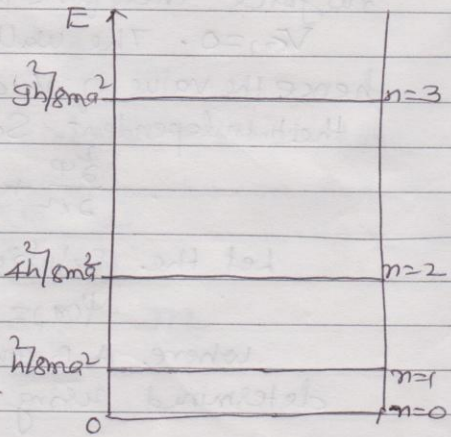 E
9h²/8ma² n=3
4h²/8ma² n=2
h²/8ma² n=1
0 n=0